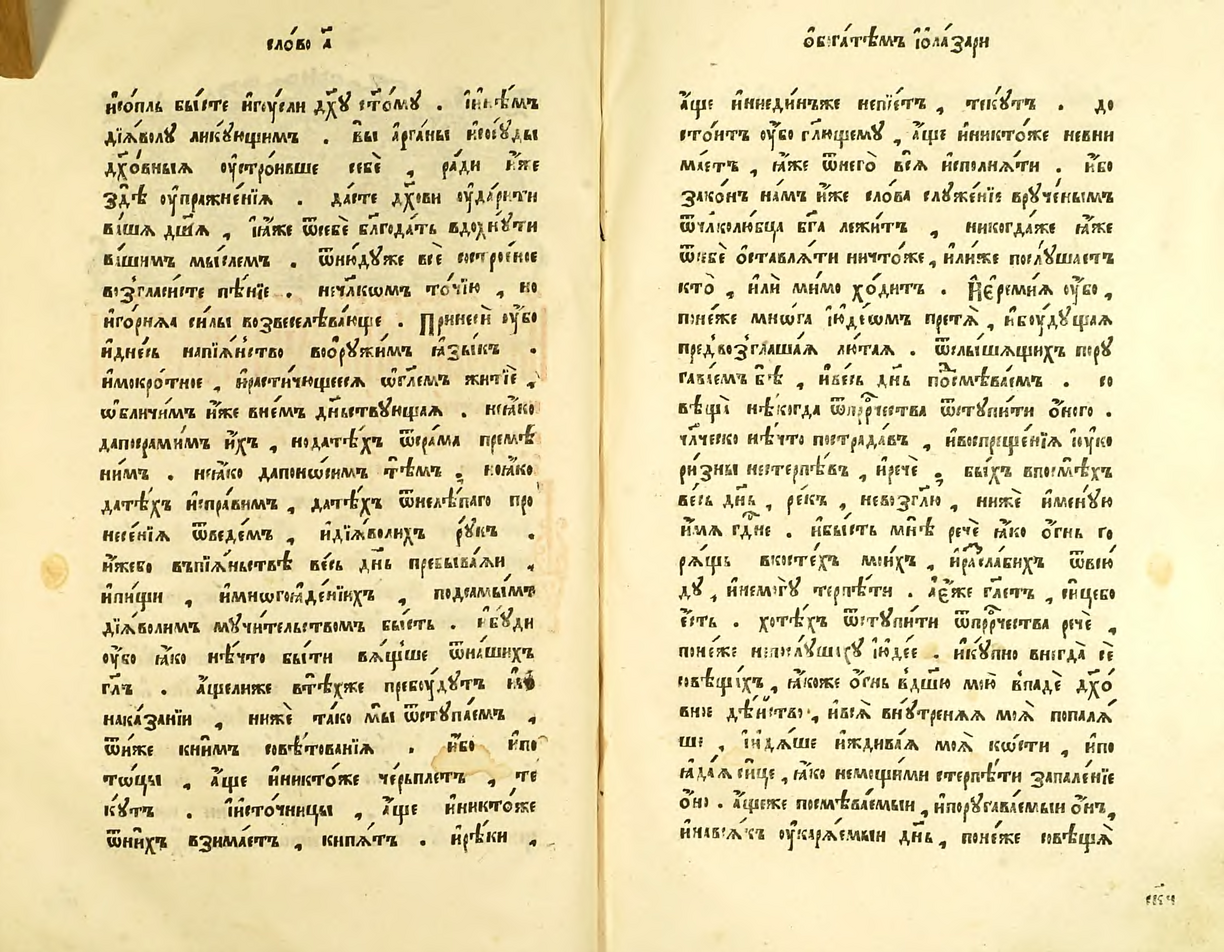 сло́во а҃
и҆сопль бы́сте и҆гоу́сли дх҃у ст҃о́му . і҆и҆нѣ́мъ
дїѧ́волу ликую́щимъ . вы̀ а҆рга́ны и҆сосу́ды
дх҃о́вныѧ оу҆стро́ивше себѐ , ра́ди и҆́же
здѣ̀ оу҆пражне́нїѧ . да́сте дх҃ови оу҆да́рити
ва́шѧ дш҃ѧ , і҆ꙗ҆́же ѿсебѐ бл҃года́ть вдохну́ти
ва́шимъ мы́слемъ . ѿню́дуже всѐ состро́еное
возгласи́сте пѣ́нїе . нечл҃комъ то́чїю , но
и҆го́рнѧѧ си́лы возвеселѣва́юще . Принесѝ оу҆́бо
и҆дне́сь напїѧ́нство воѻру́жимъ ꙗ҆зы́къ .
и҆мокро́тное , и҆растича́ющеесѧ ѡ҆гле́мъ житїѐ ,
ѡ҆бличи́мъ и҆́же вне́мъ дѣ́иствующаѧ . неꙗ҆́ко
дапосрами́мъ и҆́хъ , нодатѣ́хъ ѿсра́ма премѣ
ни́мъ . неꙗ҆́ко дапоно́симъ тѣ́мъ , ноꙗ҆́ко
датѣ́хъ и҆спра́вимъ , датѣ́хъ ѿнелѣ́паго про
несе́нїѧ ѿведе́мъ , и҆дїѧ́волихъ ру́къ .
и҆́жебо въпїѧ́ньствѣ ве́сь дн҃ь пребыва́ѧи ,
и҆пи́щи , и҆мнѡгоꙗ҆де́нїихъ , подсамы́мъ
дїѧ́волимъ мучи́тельствомъ бы́сть . и҆бу́ди
оу҆́бо ꙗ҆́ко нѣ́что бы́ти вѧ́щьше ѿна́шихъ
гл҃ъ . а҆́щелиже втѣ́хже пребоу́дутъ
наказа́нїи , ниже́ тако мы̀ ѿступа́емъ ,
ѿи́же кни́мъ совѣ́тованїѧ . и҆́бо и҆по
то́цы , а҆́ще и҆никто́же че́рьплетъ , те
ку́тъ . і҆исто́чницы , а҆́ще и҆никто́же
ѿни́хъ взима́етъ , кипѧ́тъ . и҆рѣ́ки ,
ѻ҆бога́тѣмъ і҆ѻла́зари
а҆́ще и҆ниеди́нъже непїе́тъ , теку́тъ . до
сто́итъ оу҆́бо гл҃ющему , а҆́ще и҆никто́же невни
ма́етъ , ꙗ҆́же ѿнегѡ̀ всѧ̀ и҆сполнѧ́ти . и҆́бо
зако́нъ на́мъ и҆́же сло́ва слꙋже́нїе вруче́нымъ
ѿчл҃колю́бца бг҃а лежи́тъ , никогда́же ꙗ҆́же
ѿсебѐ ѻ҆ставлѧ́ти ничто́же , и҆ли́же послу́шаетъ
кто̀ , и҆лѝ ми́мо хо́дитъ . И҆ере́миѧ оу҆́бо ,
поне́же мно́га і҆юде́омъ претѧ̀ , и҆боуду́щаѧ
предвозглаша́ѧ лю́таѧ . ѿслы́шѧщихъ пору
га́емъ бѣ̀ , и҆ве́сь дн҃ь посмѣва́емъ . со
вѣща̀ нѣ́когда ѿпрⷪ҇ро́чества ѿступи́ти ѻ҆́ного .
чл҃ческо нѣ́что пострада́въ , и҆воспреще́нїѧ і҆оу҆ко
ри́зны нестерпѣ́въ , и҆речѐ , бы́хъ впосмѣ́хъ
ве́сь дн҃ь , реко́хъ , невозгл҃ю , нижѐ и҆мену́ю
и҆́мѧ гдⷭ҇не . и҆бы́сть мнѣ̀ речѐ ꙗ҆́ко ѻ҆́гнь го
рѧ́щь вкосте́хъ мои́хъ , и҆разслабѣ́хъ ѿвсю́
ду , и҆немогу́ терпѣ́ти . а҆е́же гл҃етъ , си́цебо
е҆́сть . хотѣ́хъ ѿступи́ти ѿпрⷪ҇ро́чества речѐ ,
поне́же непослу́шаху і҆юде́е . и҆ку́пно внегда̀ се
совѣща́хъ , ꙗ҆́коже ѻ҆́гнь вдш҃ю мою̀ впадѐ дх҃о́
вное дѣ́иство , и҆всѧ̀ вну́тренѧѧ моѧ̀ попалѧ́
ше , і҆и҆дѧ́ше и҆ждива́ѧ моѧ̀ ко́сти , и҆по
ꙗ҆да́ѧ си́це , ꙗ҆́ко немощи́ми стерпѣ́ти запале́нїе
ѻ҆но . а҆́щеже посмѣва́емыи , и҆поруга́емыи ѻ҆́нъ ,
и҆навсѧ́къ оу҆карѧ́емыи дн҃ь , поне́же совѣща̀